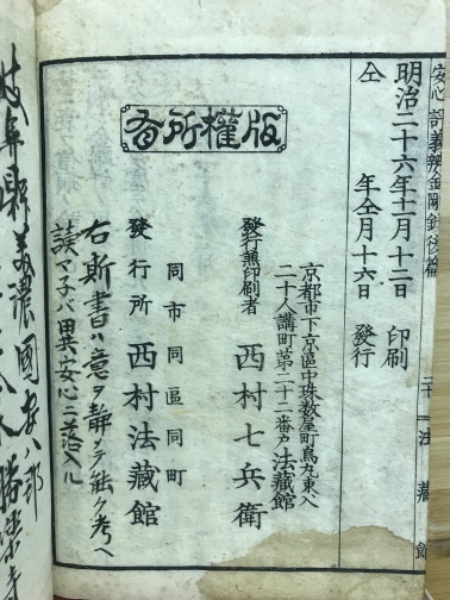 安心
金剛
法藏館
明治二十六年十二月十二日 印刷
仝 年仝月十六日 發行
版權所有
京都市下京區中珠数屋町烏丸東入
二十人講町第二十二番戸法藏館
發行兼印刷者 西村七兵衛
同市同區同町
發行所 西村法藏館
右斯書ハ意ヲ静メテ能ク考ヘ
誤マ子バ異安心ニ落入ル
岐阜縣美濃國安八郡
勝樂寺